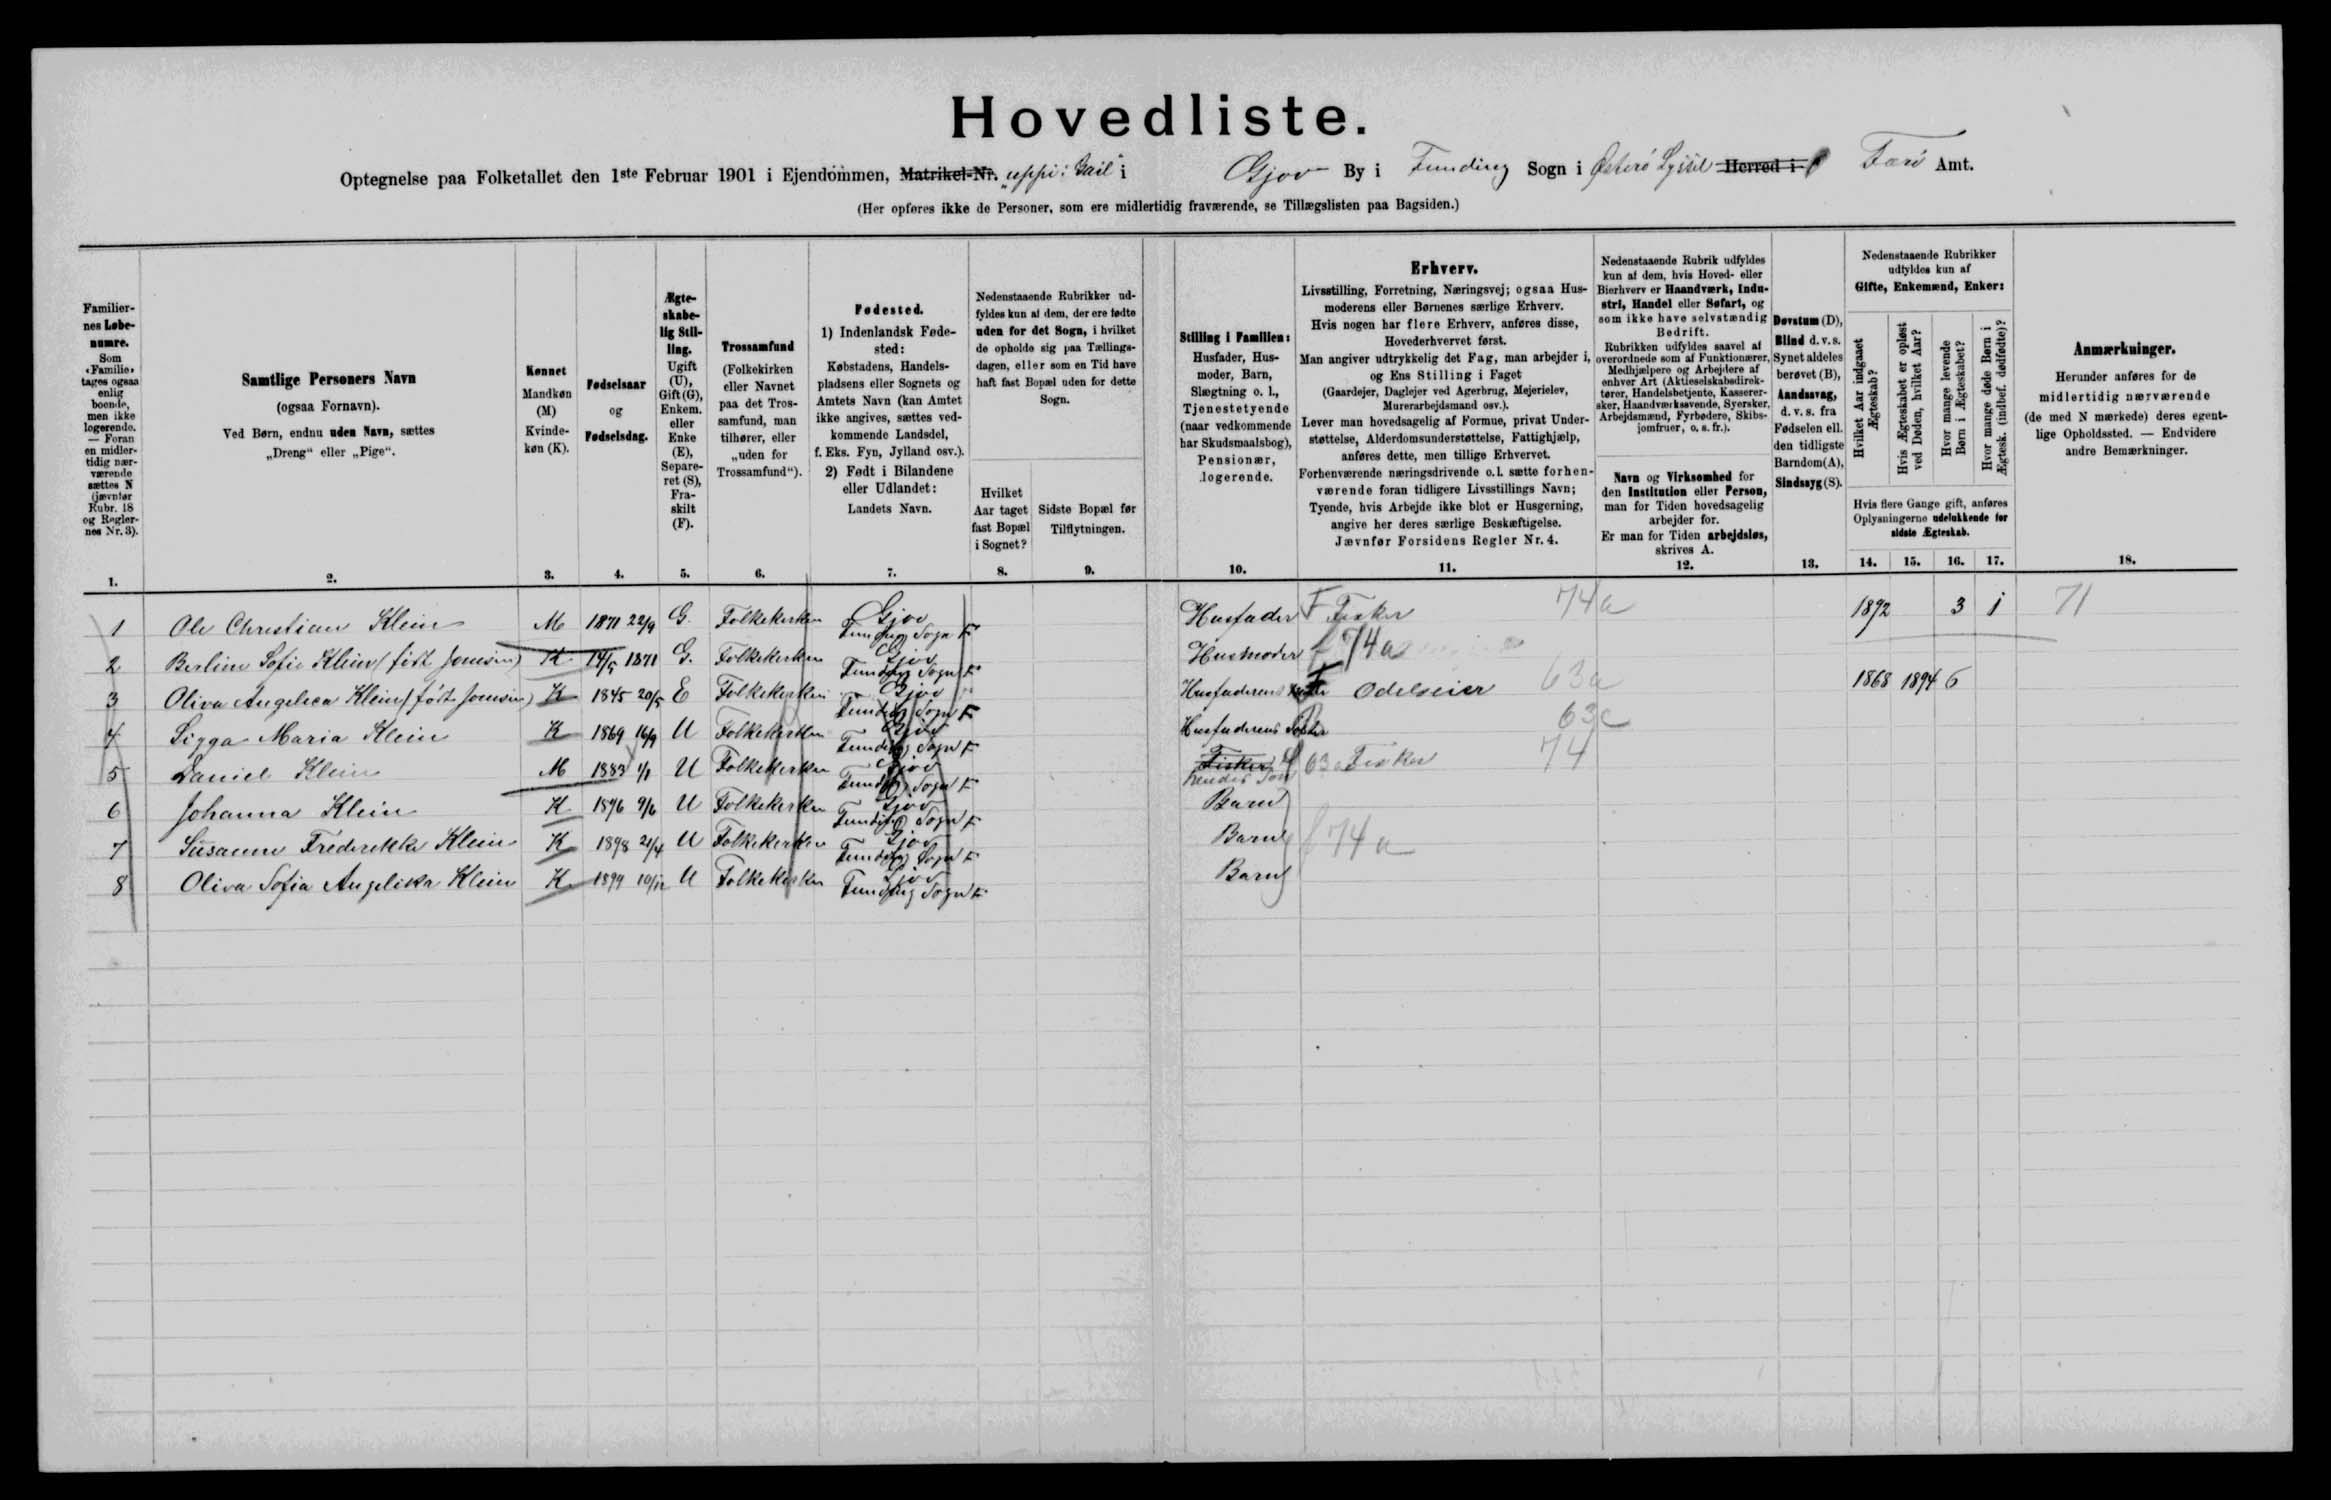 Hovedliste.
Optegnelse paa Folketallet den 1ste Februar 1901 i Ejendommen, Matrikel-Nr. "uppi i Gail" i Gjov By i Funding Sogn i Østerö Syssel Herred i Färö Amt.
(Her opføres ikke de Personer, som ere midlertidig fraværende, se Tillægslisten paa Bagsiden.)
Familier-
nes Løbe-
numre.
Som
«Familie»
tages ogsaa
enlig
boende,
men ikke
logerende.
— Foran
en midler-
tidig nær-
værende
sættes N
(jævnfør
Rubr. 18
og Regler-
nes Nr. 3).
1.
Samtlige Personers Navn
(ogsaa Fornavn).
Ved Børn, endnu uden Navn, sættes
„Dreng“ eller „Pige“.
2.
Kønnet
Mandkøn
(M)
Kvinde-
køn (K).
3.
Fødselsaar
og
Fødselsdag.
4.
Ægte-
skabe-
lig Stil-
ling.
Ugift
(U),
Gift (G),
Enkem.
eller
Enke
(E),
Separe-
ret (S),
Fra-
skilt
(F).
5.
Trossamfund
(Folkekirken
eller Navnet
paa det Tros-
samfund, man
tilhører, eller
„uden for
Trossamfund“).
6.
Fødested.
1) Indenlandsk Føde-
sted:
Købstadens, Handels-
pladsens eller Sognets og
Amtets Navn (kan Amtet
ikke angives, sættes ved-
kommende Landsdel,
f. Eks. Fyn, Jylland osv.).
2) Født i Bilandene
eller Udlandet:
Landets Navn.
7.
Nedenstaaende Rubrikker ud-
fyldes kun af dem, der ere fødte
uden for det Sogn, i hvilket
de opholde sig paa Tællings-
dagen, eller som en Tid have
haft fast Bopæl uden for dette
Sogn.
Hvilket
Aar taget
fast Bopæl
i Sognet?
8.
Sidste Bopæl før
Tilflytningen.
9.
Stilling i Familien:
Husfader, Hus-
moder, Barn,
Slægtning o. l.,
Tjenestetyende
(naar vedkommende
har Skudsmaalsbog),
Pensionær,
logerende.
10.
Erhverv.
Livsstilling, Forretning, Næringsvej; ogsaa Hus-
moderens eller Børnenes særlige Erhverv.
Hvis nogen har flere Erhverv, anføres disse,
Hovederhvervet først.
Man angiver udtrykkelig det Fag, man arbejder i,
og Ens Stilling i Faget
(Gaardejer, Daglejer ved Agerbrug, Mejerielev,
Murerarbejdsmand osv.).
Lever man hovedsagelig af Formue, privat Under-
støttelse, Alderdomsunderstøttelse, Fattighjælp,
anføres dette, men tillige Erhvervet.
Forhenværende næringsdrivende o.l. sætte forhen-
værende foran tidligere Livsstillings Navn;
Tyende, hvis Arbejde ikke blot er Husgerning,
angive her deres særlige Beskæftigelse.
Jævnfør Forsidens Regler Nr. 4.
11.
Nedenstaaende Rubrik udfyldes
kun af dem, hvis Hoved- eller
Bierhverv er Haandværk, Indu-
stri, Handel eller Søfart, og
som ikke have selvstændig
Bedrift.
Rubrikken udfyldes saavel af
overordnede som af Funktionærer,
Medhjælpere og Arbejdere af
enhver Art (Aktieselskabsdirek-
tører, Handelsbetjente, Kasserer-
sker, Haandværkssvende, Syersker,
Arbejdsmænd, Fyrbødere, Skibs-
jomfruer, o. s. fr.).
Navn og Virksomhed for
den Institution eller Person,
man for Tiden hovedsagelig
arbejder for.
Er man for Tiden arbejdsløs,
skrives A.
12.
Døvstum (D),
Blind d. v. s.
Synet aldeles
berøvet (B),
Aandssvag,
d. v. s. fra
Fødselen ell.
den tidligste
Barndom (A),
Sindssyg (S).
13.
Nedenstaaende Rubrikker
udfyldes kun af
Gifte, Enkemænd, Enker:
Hvilket Aar indgaaet
Ægteskab?
Hvis Ægteskabet er opløst
ved Døden, hvilket Aar?
Hvor mange levende
Børn i Ægteskabet?
Hvor mange døde Børn i
Ægtesk. (indbef. dødfødte)?
Hvis flere Gange gift, anføres
Oplysningerne udelukkende for
sidste Ægteskab.
14. 15. 16. 17.
Anmærkninger.
Herunder anføres for de
midlertidig nærværende
(de med N mærkede) deres egent-
lige Opholdssted. — Endvidere
andre Bemærkninger.
18.
1 Ole Christian Klein M 1871 22/9 G. Folkekirken Gjov Funding Sogn F Husfader F Fisker 74a 1892 3 1 71
2 Berline Sofie Klein (født Joensen) K 14/5 1871 G. Folkekirken Gjov Funding Sogn F Husmoder f 74a
3 Oliva Angelica Klein (født Joensen) K 1845 20/5 E Folkekirken Gjov Funding Sogn F Husfaderens F Odelseier 63a 1868 1894 6
4 Sigga Maria Klein K 1869 16/9 U Folkekirken Gjov Funding Sogn F Husfaderens Søster 63c
5 Daniel Klein M 1883 1/1 U Folkekirken Gjov Funding Sogn F Fisker hendes Søn Fisker 74
6 Johanna Klein K 1896 9/6 U Folkekirken Gjov Funding Sogn F Barn
7 Susanne Frederikke Klein K 1898 21/4 U Folkekirken Gjov Funding Sogn F Barn f 74a
8 Oliva Sofia Angelika Klein K 1899 10/12 U Folkekirken Gjov Funding Sogn F Barn